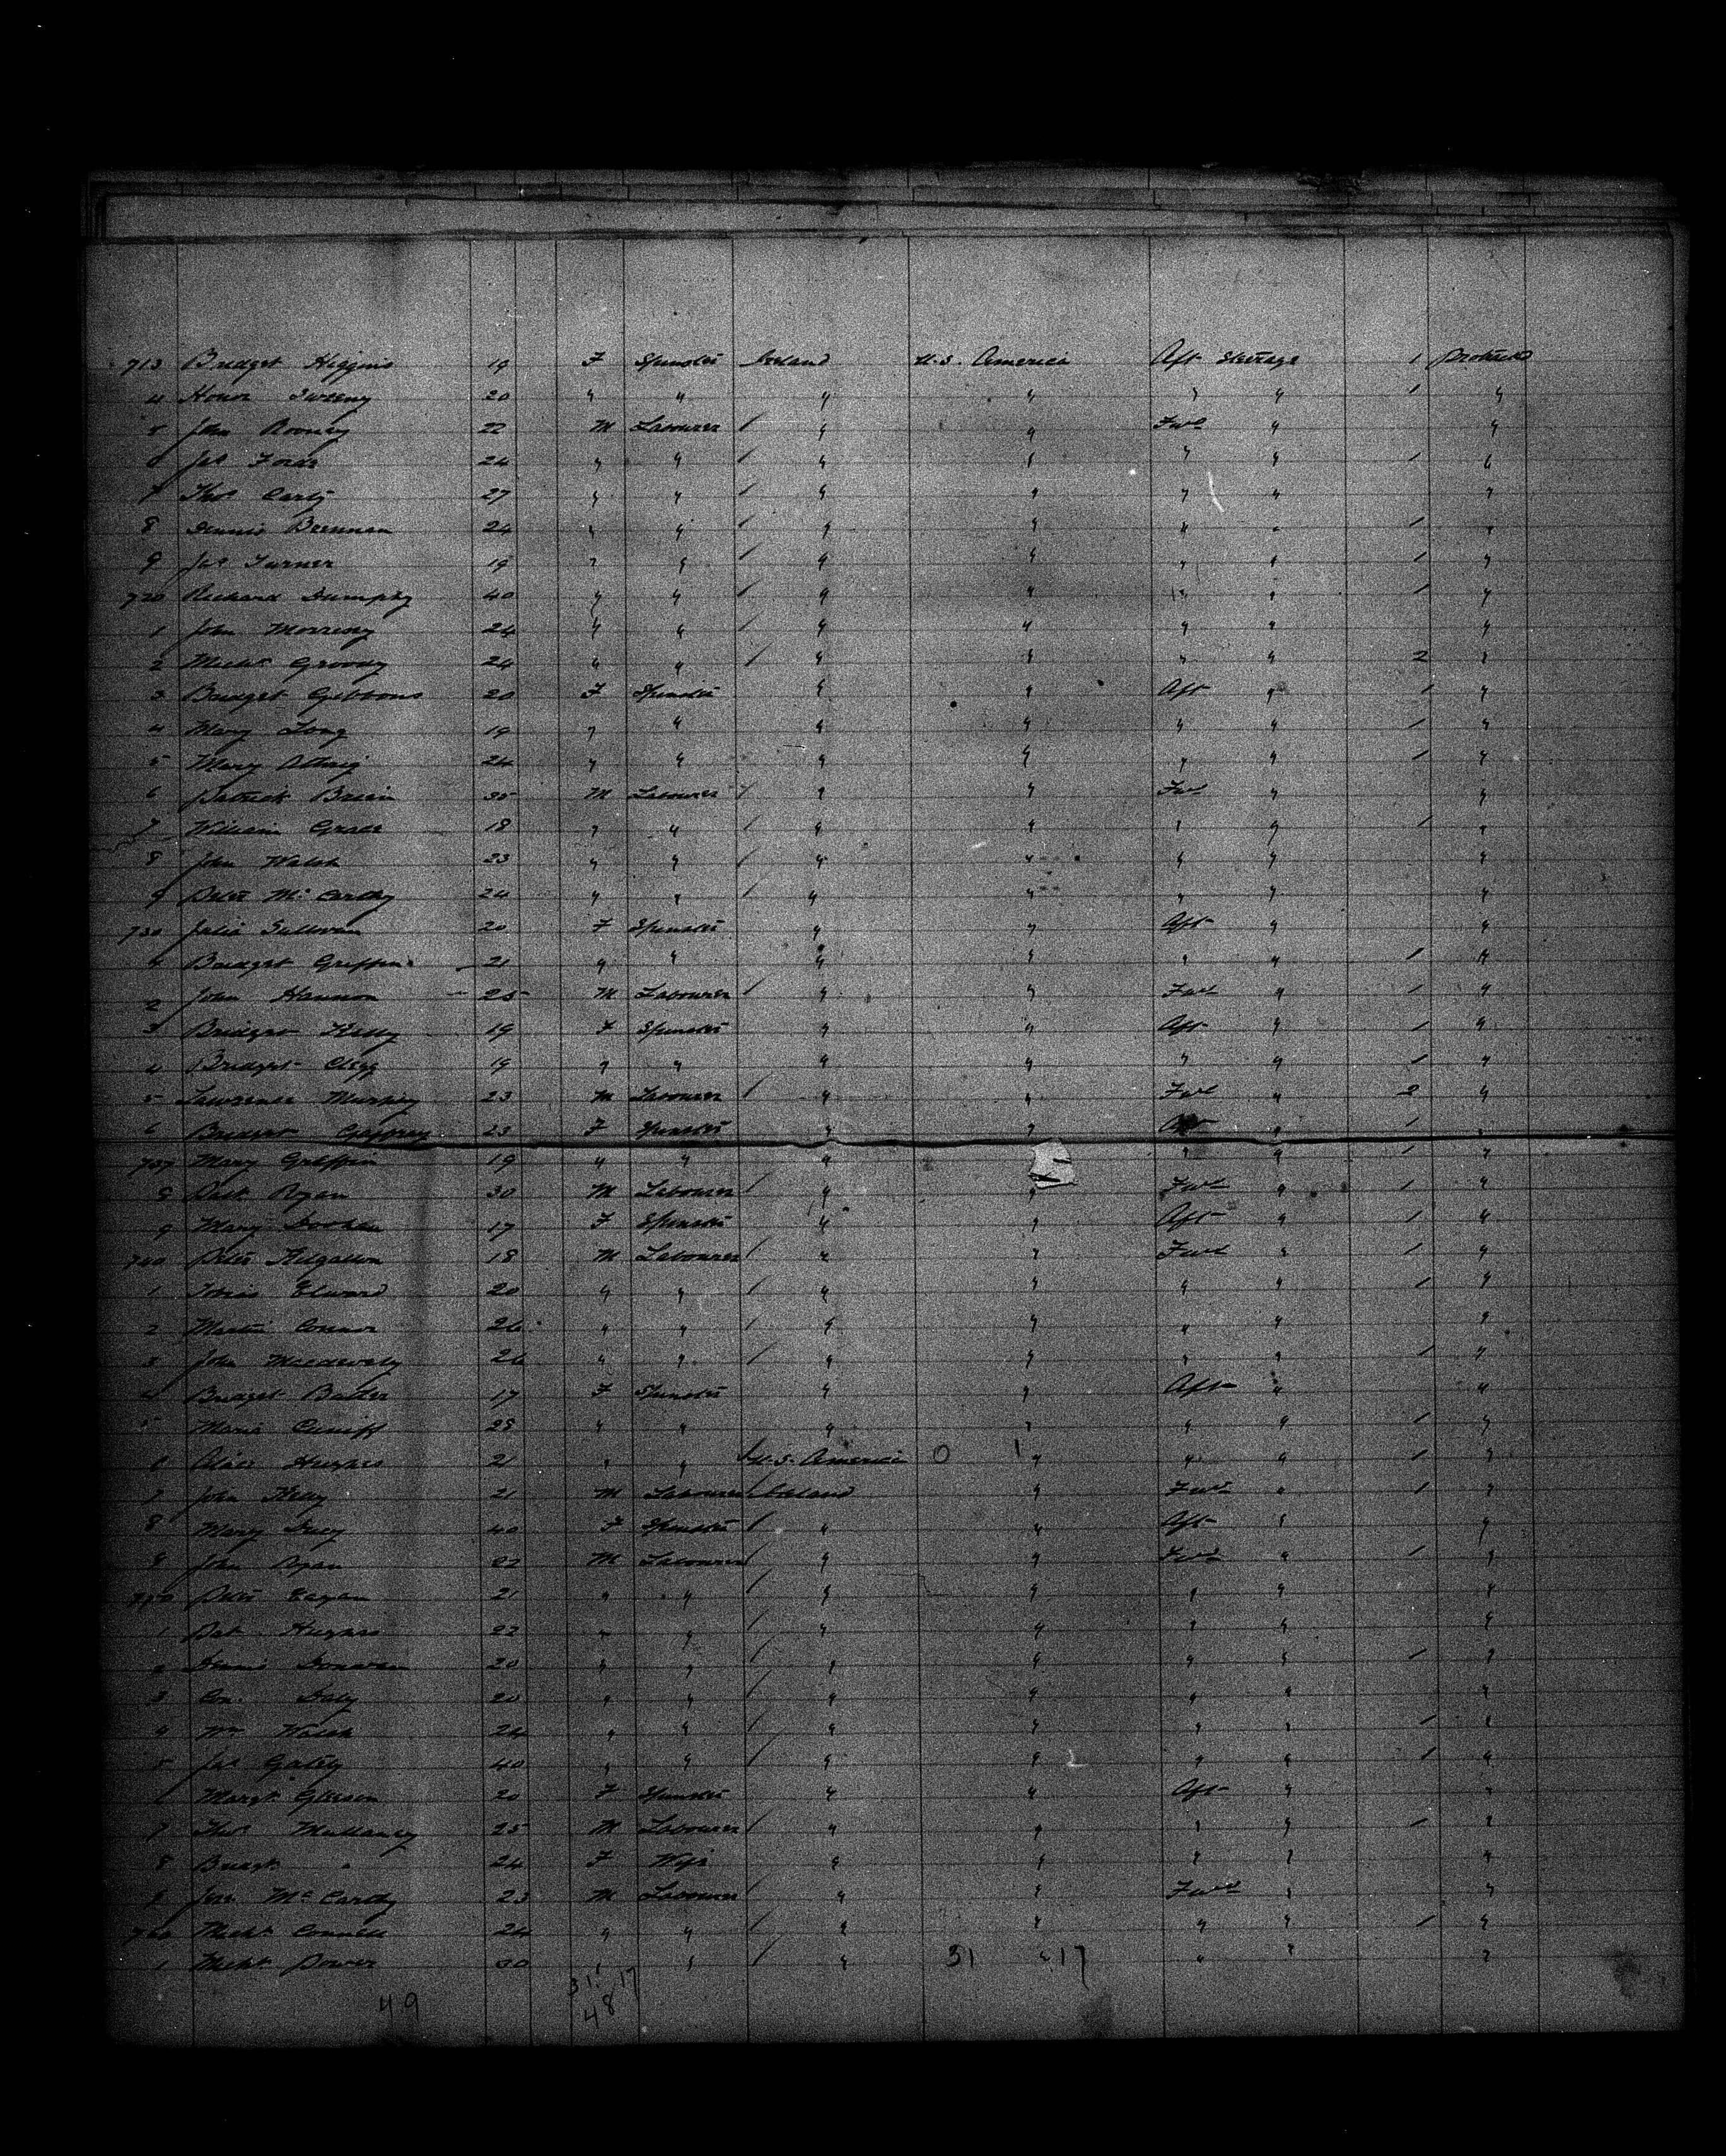 713 Bridget Higgins 19 F Spinster Ireland U.S. America Aft Steerage 1
4 Honor Sweeny 20 " " " " " " 1 "
5 John Rooney 22 M Labourer " " Fwd " "
6 Jas Forde 24 " " " " " " 1 "
7 Thos Carty 27 " " " " " " "
8 Dennis Brennan 24 " " " " " " 1 "
9 Jas Turner 19 " " " " " " 1 "
720 Richard Dumphy 40 " " " " " " 1 "
1 John 24 " " " " " " "
2 Michl Groody 24 " " " " " " 2 "
3 Bridget Gibbons 20 F Spinster " " Aft " 1 "
4 Mary Long 19 " " " " " " 1 "
5 Mary 24 " " " " " " 1 "
6 Patrick Brien 35 M Labourer " " Fwd " "
7 William Grace 18 " " " " " " 1 "
8 John Walsh 23 " " " " " " "
9 Peter McCarthy 24 " " " " " " "
730 Julia Sullivan 20 F Spinster " " Aft " "
Bridget Griffin 21 " " " " " " 1 "
2 John Hannon 25 M Labourer " " Fwd " 1 "
3 Bridget Kelly 19 F Spinster " " Aft " 1 "
4 Bridget Clegg 19 " " " " " " 1 "
5 Lawrence Murphy 23 M Labourer " " Fwd " 2 "
6 Bridget Gaffney 23 F Spinster " " Aft " 1 "
737 Mary Griffin 19 " " " " " 1 "
8 Patk Ryan 30 M Labourer " " Fwd " 1 "
9 Mary 17 F Spinster " " Aft " 1 "
740 Peter Kilgallon 18 M Labourer " " Fwd " 1 "
1 Tobias Elward 20 " " " " " " 1 "
2 Martin Connor 26 " " " " " " "
3 John 26 " " " " " " 1 "
4 Bridget Butler 17 F Spinster " " Aft " "
5 Maria Cuniff 28 " " " " " " 1 "
6 Alice Hughes 21 " " U.S. America 0 1 " " " 1 "
7 John Kelly 21 M Labourer Ireland " Fwd " 1 "
8 Mary 40 F Spinster " " Aft " "
9 John Ryan 22 M Labourer " " Fwd " 1 "
750 Peter Eagan 21 " " " " " " "
1 Pat Hughes 22 " " " " " " "
2 Dennis Donovan 20 " " " " " " 1 "
3 Con. Daly 20 " " " " " " "
4 Wm Walsh 24 " " " " " " 1 "
5 Jas Gately 40 " " " " " " 1 "
6 Margt Gleeson 20 F Spinster " " Aft " "
7 Thos Mullaney 25 M Labourer " " " " 1 "
8 Bridgt " 24 F Wife " " " " "
9 McCarthy 23 M Labourer " " Fwd " "
760 Michl Connell 24 " " " " " " 1 "
1 Michl Power 30 " " " 31 " 17 " " "
31 17
49 48